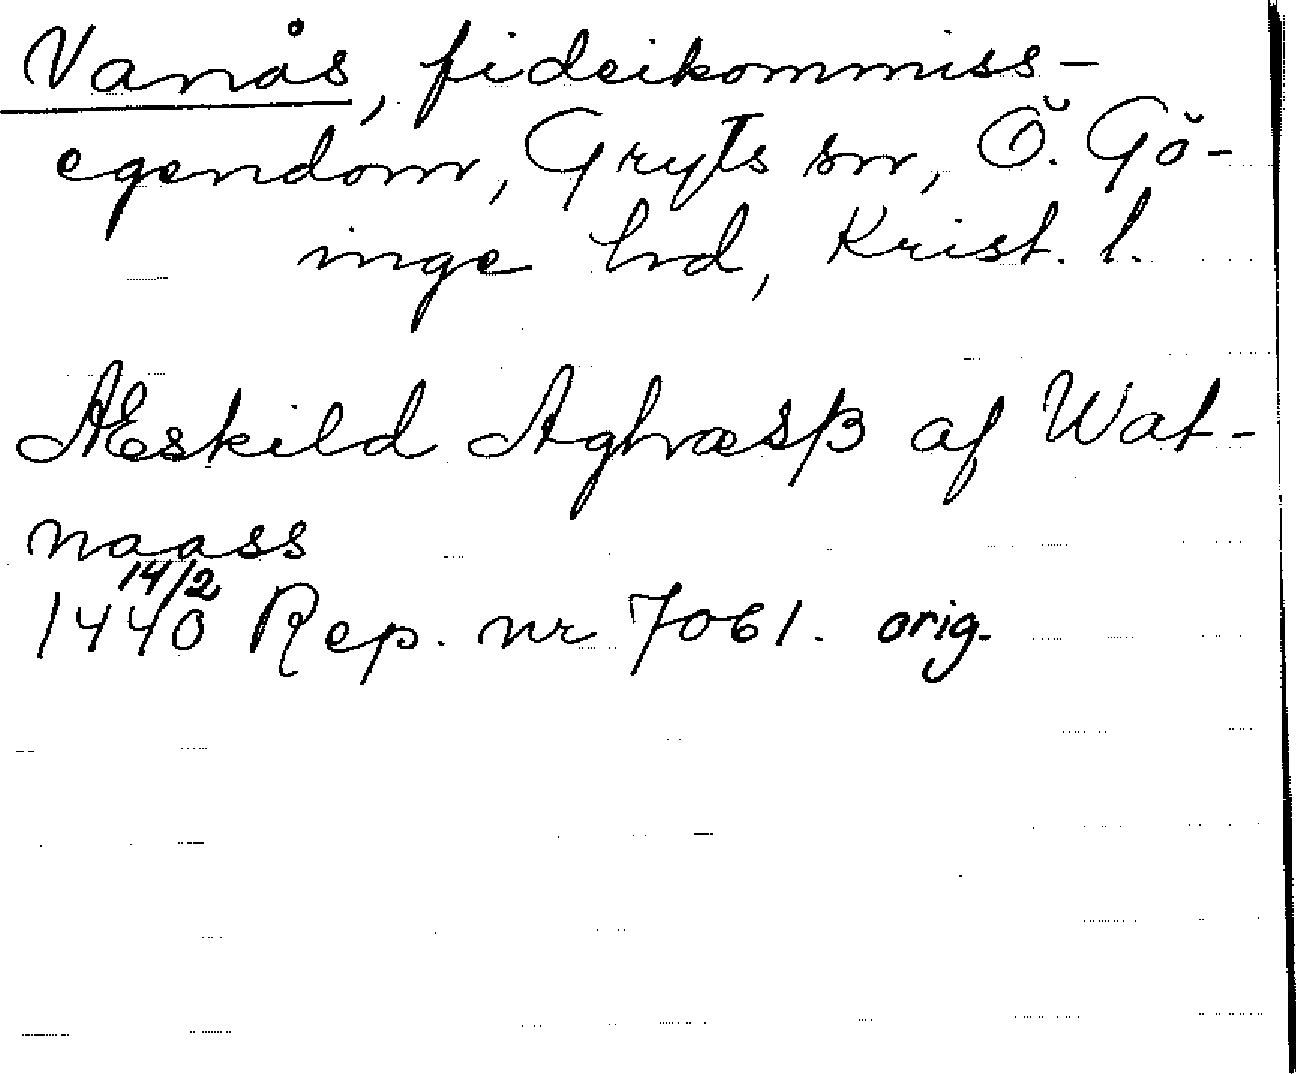 Vanås, fideikommiss-
egendom, Gryts sn, Ö. Gö-
inge hd, Krist. l.
Æskild Aghæsß af Wat-
naass
14/2
1440 Rep. nr 7061. orig.